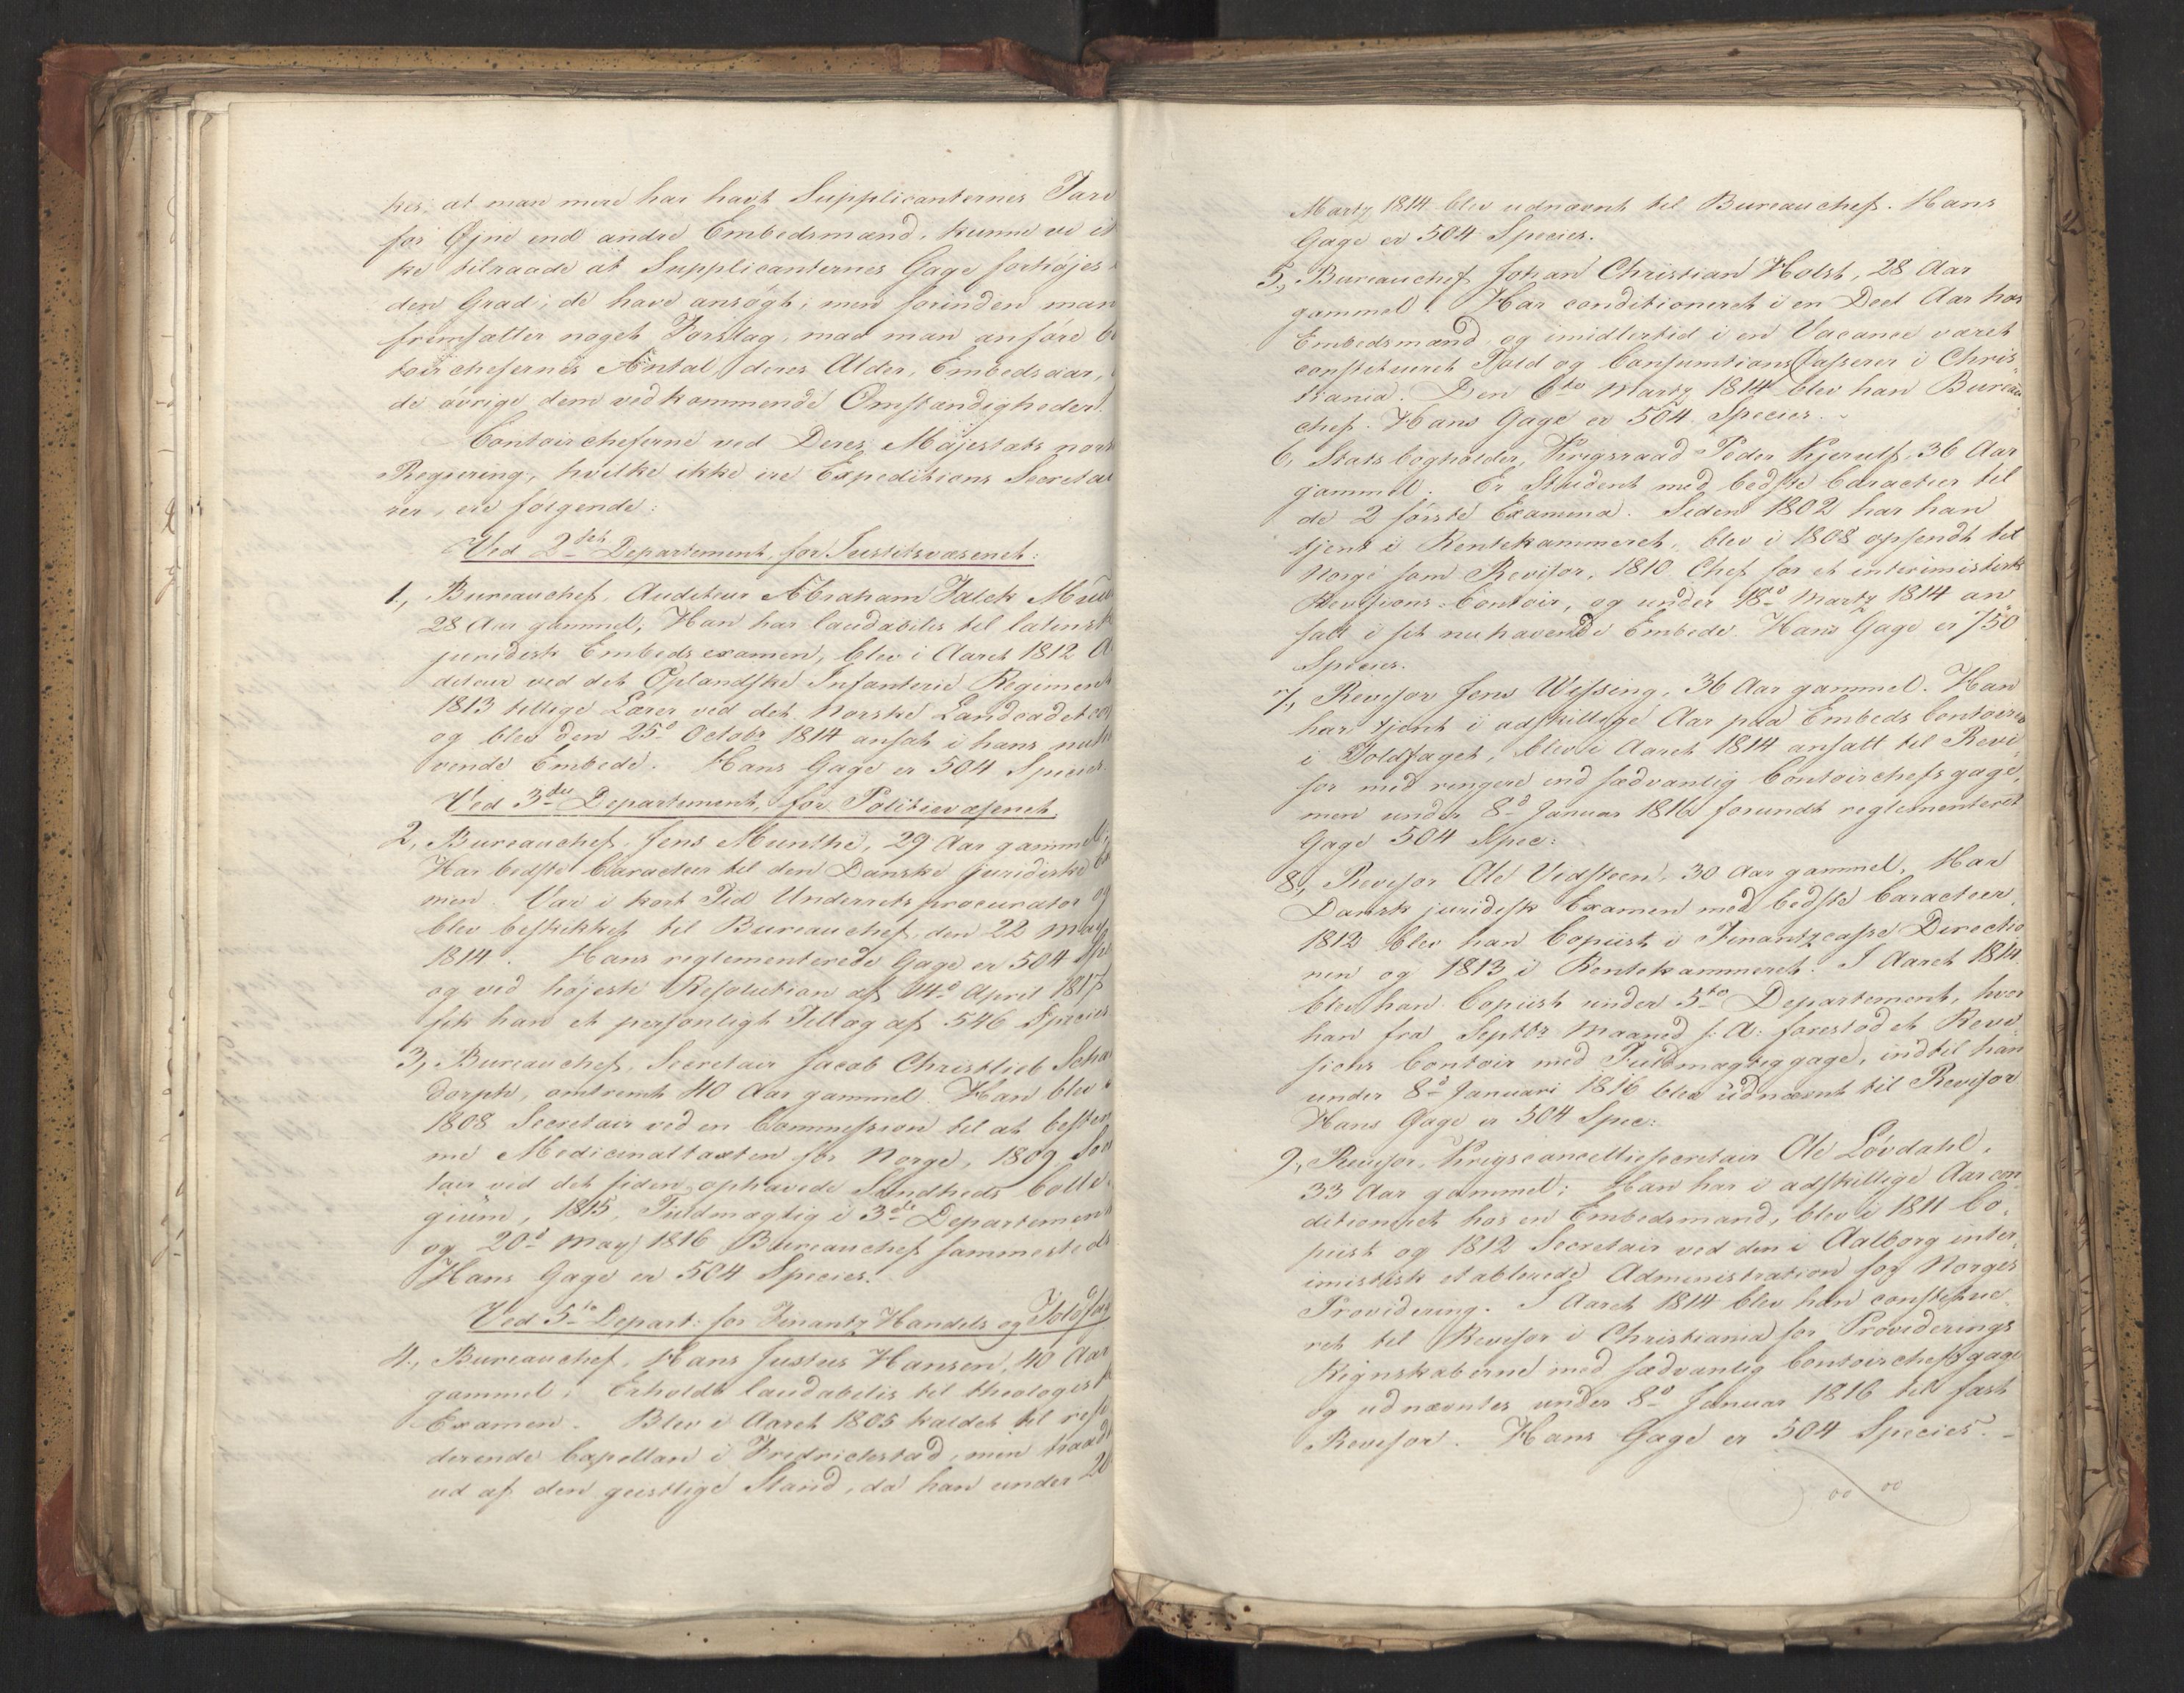 kes, at man mere har havt Supplicanternes Tarv
for Øjne end andre Embedsmænd, kunne vi ik
ke tilraade at Supplicanternes Gage forhøjes i
den Grad, de have ansøgt, men forinden man
fremsætter noget Forslag, maa man anføre Con
toirchefernes Antal, deres Alder, Embedsaar,
de øvrige dem vedkommende Omstændigheder.
Contoircheferne ved Deres Majestæts norsk
Regjering, hvilke ikke ere Expeditions Secretai
rer, ere følgende:
Ved 2det Departement for Justitsvæsenet:
1., Bureauchef, Auditeur Abraham Falck
28 Aar gammel; Han har laudabilis til latinsk
juridisk Embedsexamen, blev i Aaret 1812 Au
diteur ved det Oplandske Infanterie Regiment
1813 tillige Lærer ved det Norske Landcadetcorps
og blev den 25d Octobr 1814 ansat i hans nuha
vende Embede. Hans Gage er 504 Species.
Ved 3die Departement, for Politievæsenet.
2, Bureauchef, Jens Munthe, 29 Aar gammel;
Har bedste Caracteer til den Danske juridiske Exa
men. Var i kort Tid Underretsprocurator og
blev beskikket til Bureauchef den 22 May
1814. Hans reglementerede Gage er 504 Spe
og ved højeste Resolution af 14d April 1817
fik han et personligt Tillæg af 546 Species
3, Bureauchef, Secretair Jacob Christlieb
dorph, omtrent 40 Aar gammel. Han blev i
1808 Secretair ved en Commission til at bestem
me Medicinaltaxten for Norge, 1809 Secre
tair ved det siden ophævede Sundheds Colle
gium, 1815, Fuldmægtig i 3die Departement
og 20d May 1816 Bureauchef sammesteds
Hans Gage er 504 Species.
Ved 5te Depart: for Finantz Handels og Toldfag
4., Bureauchef, Hans Justus Hansen, 40 Aar
gammel; Erholdt laudabilis til theologisk
Examen. Blev i Aaret 1805 kaldet til resi
derende Capellan i Fredrichstad, men traadt
ud af den geistlige Stand, da han under 26
Martz 1814 blev udnævnt til Bureauchef. Hans
Gage er 504 Species.
5., Bureauchef Johan Christian Holst, 28 Aar
gammel. Har conditioneret i en Deel Aar hos
Embedsmænd og imidlertid i en Vacance været
constitueret Told og Consumtions Casserer i Chris-
tiania. Den 6te Martz 1814 blev han Bureau-
chef. Hans Gage er 504 Species.
6, Statsbogholder, Krigsraad Peder Kjerulf, 36 Aar
gammel. Er Student med bedste Caracteer til
de 2 første Examina. Siden 1802 har han
tjent i Rentekammeret, blev i 1808 opsendt til
Norge som Revisor, 1810 Chef for et interimistisk
Revisions-Contoir, og under 18d Martz 1814 an-
satt i sit nuhavende Embede. Hans Gage er 750
Species.
7., Revisor Jens Wissing, 36 Aar gammel. Han
har tjent i adskillige Aar paa Embeds Contoirer
i Toldfaget, blev i Aaret 1814 ansatt til Revi-
sor med ringere end sædvanlig Contoirchefs gage,
men under 8d Januar 1816 forundt reglementeret
Gage 504 Spec:
8, Revisor Ole Vidsteen, 30 Aar gammel, Har
Dansk juridisk Examen med bedste Caracteer,
1812 blev han Copiist i Finantzcasse Directio
nen og 1813 i Rentekammeret. I Aaret 1814
blev han Copiist under 5te Departement, hvor
han fra Septbr Maaned s: A: forestod et Revi-
sions Contoir med Fuldmægtiggage, indtil han
under 8d Januari 1816 blev udnævnt til Revisor
Hans Gage er 504 Spec:
9, Revisor, Krigscancelliesecretair Ole Løvdahl,
33 Aar gammel; Han har i adskillige Aar con
ditioneret hos en Embedsmand, blev i 1811 Co-
piist og 1812 Secretair ved den i Aalborg inter-
imistisk etablerede Administration for Norges
Providering. I Aaret 1814 blev han constitue-
ret til Revisor i Christiania for Providerings
Regnskaberne med sædvanlig Contoirchefsgage
og udnævntes under 8d Januar 1816 til fast
Revisor. Hans Gage er 504 Species.